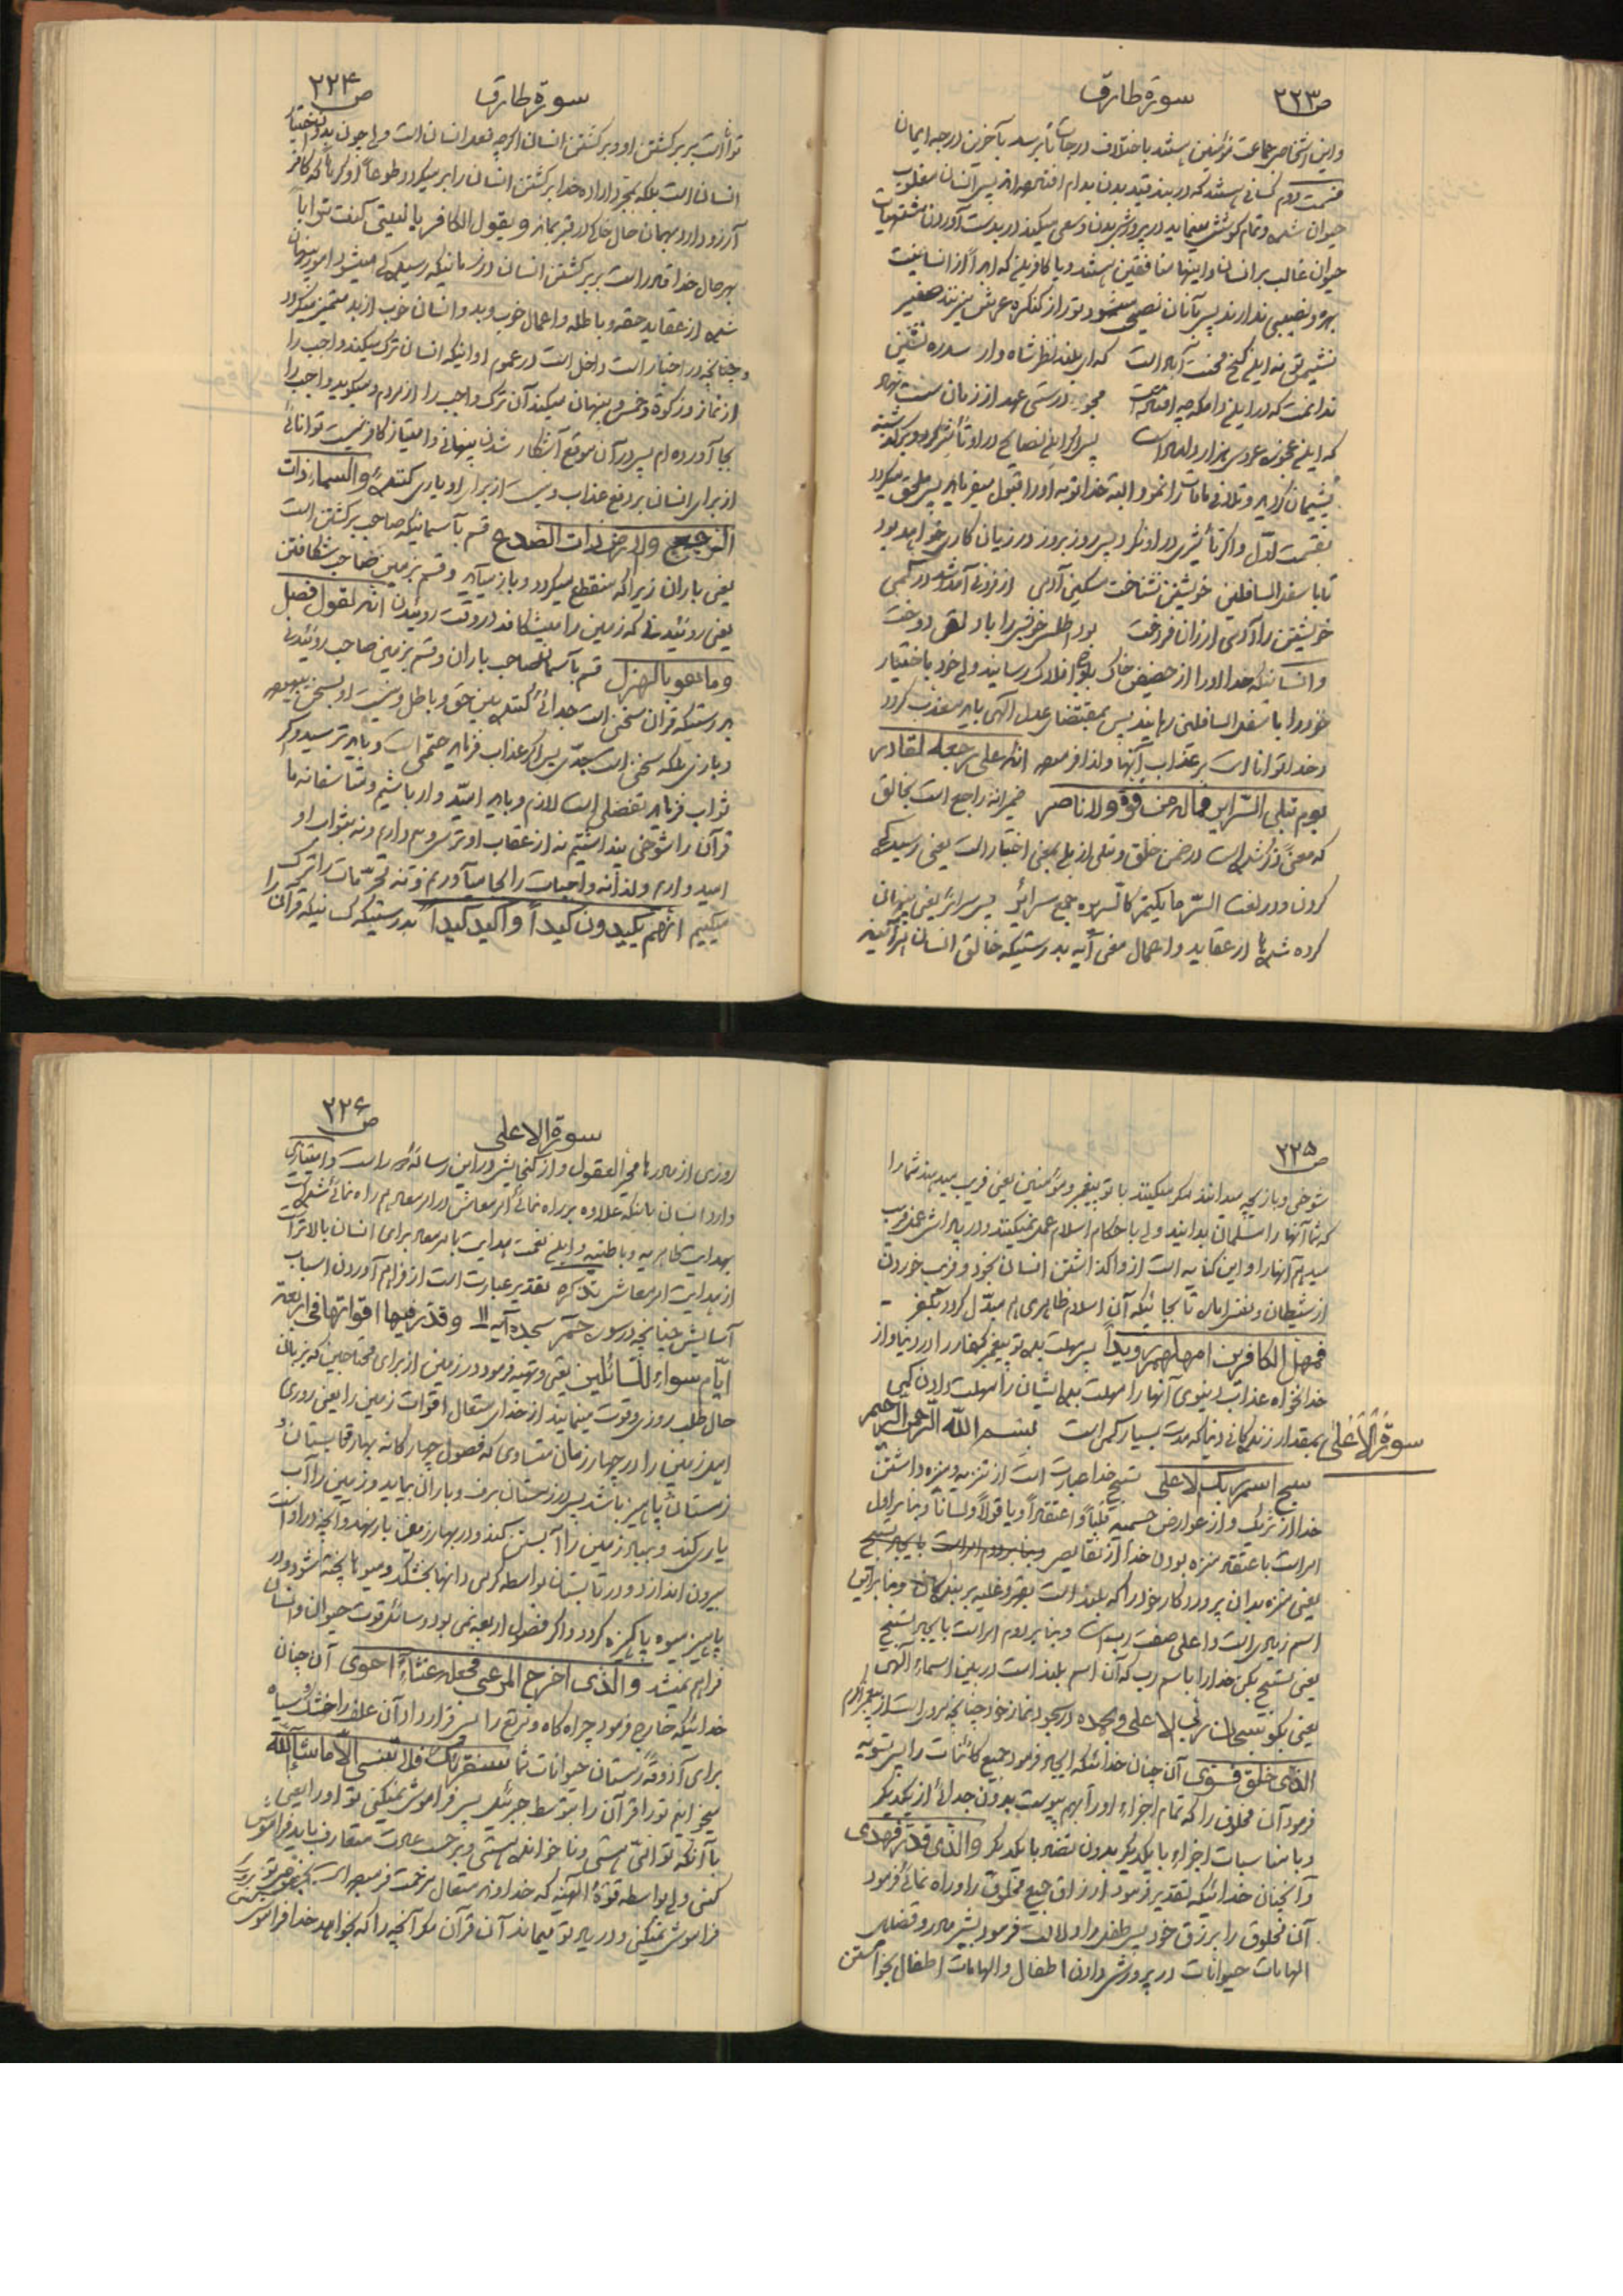 ص ۲۲۳
سورة طارق
و این اشخاص جماعت مؤمنین هستند باختلاف درجات تا برسد بآخرین درجه ایمان
قسمت دوم کسانی هستند که در بند قید بدن بدام افتاده اند پس انسان مغلوب
حیوان شده و تمام کوشش مینماید در پرورش بدن و سعی میکند در بدست آوردن مشتهیات
حیوان غالب بر انسان و اینها منافقین هستند و یا کافرین که ابداً از انسانیت
بهره و نصیبی ندارند پس بآنان نصیحت میشود تو را از کنگره عرش میزنند صفیر
نشیمن تو نه این کنج محنت آباد است که ای بلند نظر شاهباز سدره نشین
ندانمت که در این دامگه چه افتاده است مجو درستی عهد از زمان سست نهاد
که این عجوزه عروس هزار داماد است پس اگر این نصایح در او تأثیر کرد و برگشته
پشیمان گردید و تلافی مافات را نمود البته خدا توبه او را قبول میفرماید پس ملحق میگردد
بقسمت اوّل و اگر تأثیری در او نکرد پس روز بروز در زیان کاری خواهد بود
تا باسفل السافلین خویشتن نشناخت مسکین آدمی از فزونی آمد و شد در کمی
خویشتن را آدمی ارزان فروخت بود اطلس خویش را بر دلقی دوخت
و انسانیکه خدا او را از حضیض خاک باوج افلاک رسانید ولی خود باختیار
خود را باسفل السافلین رسانید پس بمقتضای عدل الهی باید معذب گردد
و خدا توانا است بر عذاب آنها و لذا فرموده انه علی رجعه لقادر
یوم تبلی السرائر فماله من قوة ولا ناصر ضمیر انه راجع است بخالق
که معنیً ذکر شده است در ضمن خلق و تبلی از بلی بمعنی اختبار است یعنی رسیدگی
کردن و در لغت السّر ما یکتم کالسریره جمع سرائر پس سرائر یعنی پنهان
کرده شده ها از عقاید و اعمال معنی آیه بدرستیکه خالق انسان هرآینه
ص ۲۲۴
سورة طارق
توانا است بر برگشتن او و برگشتن انسان اگرچه فعل انسان است ولی چون بدون اختیار
انسان است بلکه بمجرد اراده خدا برگشتن انسان را بر میگردد طوعاً او کرهاً که کافر
آرزو دارد بهمان حال خاکی در قبر بماند و یقول الکافر یا لیتنی کنت ترابا
بهرحال خدا قادر است بر برگشتن انسان در زمانیکه رسیدگی میشود امور پنهان
شده از عقاید حقه و باطله و اعمال خوب و بد و انسان خوب از بد متمیز میگردد
و چنانچه در اخبار است داخل است در عموم او اینکه انسان ترک میکند واجب را
از نماز و زکوة و خمس و پنهان میکند آن ترک واجب را از مردم و میگوید واجب را
بجا آورده ام پس در آن موقع آشکار شدن پنهانی و امتیاز کافر نیست توانائی
از برای انسان بر دفع عذاب و نیست از برای او یاری کننده والسماء ذات
الرجع والارض ذات الصدع قسم بآسمانیکه صاحب برگشتن است
یعنی باران زیرا که منقطع میگردد و باز میآید و قسم بزمین صاحب شکافتن
یعنی روئیدنی که زمین را میشکافد در وقت روئیدن انه لقول فصل
وما هو بالهزل قسم بآسمان صاحب باران و قسم بزمین صاحب روئیدنی
بدرستیکه قرآن سخنی است جدا کننده بین حق و باطل و نیست او بسخن بیهوده
و بازی بلکه سخن است بجدّی پس اگر عذاب فرماید حتمی است و باید ترسید و اگر
ثواب فرماید تفضلی است لازم و باید امید وار باشیم و متأسفانه ما
قرآن را شوخی پنداشتیم نه از عقاب او ترس داریم و نه بثواب او
امید واریم و لذا نه واجبات را بجا میآوریم و نه محرّمات را ترک
میکنیم انهم یکیدون کیداً واکید کیداً بدرستیکه کسانیکه قرآن را
ص ۲۲۵
شوخی و بازیچه میدانند مکر میکنند با تو پیغمبر و مؤمنین یعنی فریب میدهند شما را
که شما آنها را مسلمان بدانید ولی باحکام اسلام عمل نمیکنند و در پاداش عمل فریب
میدهم آنها را و این کنایه است از واگذاشتن انسان بخود و فریب خوردن
از شیطان و نفس اماره تا بجائیکه آن اسلام ظاهری هم مبدّل گردد بکفر -
فمهل الکافرین امهلهم رویداً پس مهلت بده تو پیغمبر کفار را در دنیا و از
خدا نخواه عذاب دنیوی آنها را مهلت بده ایشان را مهلت دادن کمی
بمقدار زندگانی دنیا که مدت بسیار کمی است بسم الله الرحمن الرحیم
سورة الاعلی
سبح اسم ربک الاعلی تسبیح خدا عبارت است از تنزیه و منزه داشتن
خدا از شرک و از عوارض جسمیه قلباً و اعتقاداً و یا قولاً و لساناً و بنا بر اول
امر است باعتقاد منزه بودن خدا از نقایص
یعنی منزه بدان پروردگار خود را که بلند است بقهر و غلبه بر بندگان و بنا براین
اسم زیادی است و اعلی صفت رب است و بنا بر دوم امر است بایجاد تسبیح
یعنی تسبیح بکن خدا را باسم رب که آن اسم بلند است در بین اسماء الهی
یعنی بگو سبحان ربی الاعلی و بحمده در سجود نماز خود چنانچه مروی است از پیغمبر اکرم
الذی خلق فسوی آن چنان خدائیکه ایجاد فرمود جمیع کائنات را پس تسویه
فرمود آن مخلوق را که تمام اجزاء او را بهم پیوست بدون جدائی از یکدیگر
و با مناسبات اجزاء با یکدیگر بدون تضاد با یکدیگر والذی قدر فهدی
و آنچنان خدائیکه تقدیر فرمود ارزاق جمیع مخلوق را و راه نمائی فرمود
آن مخلوق را برزق خود پس طفل را دلالت فرمود بشیر مادر و قضایای
الهامات حیوانات در پرورش دادن اطفال و الهامات اطفال بخواستن
ص ۲۲۶
سورة الاعلی
روزی از مادرها محیر العقول و از گنجایش در این رساله خارج است و امتیازی
دارد انسان باینکه علاوه بر راه نمائی امر معاش در امر معاد هم راه نمائی شده است
بهدایت ظاهریه و باطنیه و این نعمت هدایت بامر معاد برای انسان بالاتر است
از هدایت امر معاش تذکره تقدیر عبارت است از فراهم آوردن اسباب
آسایش چنانچه در سوره حم سجده آیه ۱۱ وقدّر فیها اقواتها فی اربعة
ایّام سواء للسائلین یعنی و تهیه فرمود در زمین از برای محتاجین که بزبان
حال طلب روزی و قوت مینمایند از خدای متعال اقوات زمین را یعنی روزی
اهل زمین را در چهار زمان متساوی که فصول چهارگانه بهار و تابستان و
زمستان و پاییز باشد پس در زمستان برف و باران بیاید و زمین را آب
یاری کند و بهار زمین را آبستن کند و در بهار زمین بار بنهد و آنچه در او است
بیرون اندازد و در تابستان بواسطه گرمی دانها بخشکد و میوه ها پخته شود و در
پاییز میوه پاکیزه گردد و اگر فصول اربعه نمی بود وسائل قوت حیوان و انسان
فراهم نمیشد والذی اخرج المرعی فجعله غثاءً احوی آن چنان
خدائیکه خارج فرمود چراگاه و مرتع را پس قرار داد آن علف را خشک و سیاه
برای آذوقه زمستان حیوانات شما سنقرئک فلا تنسی الا ما شاء الله
میخوانیم تو را قرآن را بتوسط جبرئیل پس فراموش نمیکنی تو او را یعنی
با آنکه تو امّی هستی و ناخوانده هستی و بر حسب عادت متعارف باید فراموش
کنی ولی بواسطه قوّة الهیه که خداوند متعال مرحمت فرموده است
فراموش نمیکنی و در یاد تو میماند آن قرآن مگر آنچه را که بخواهد خدا فراموش